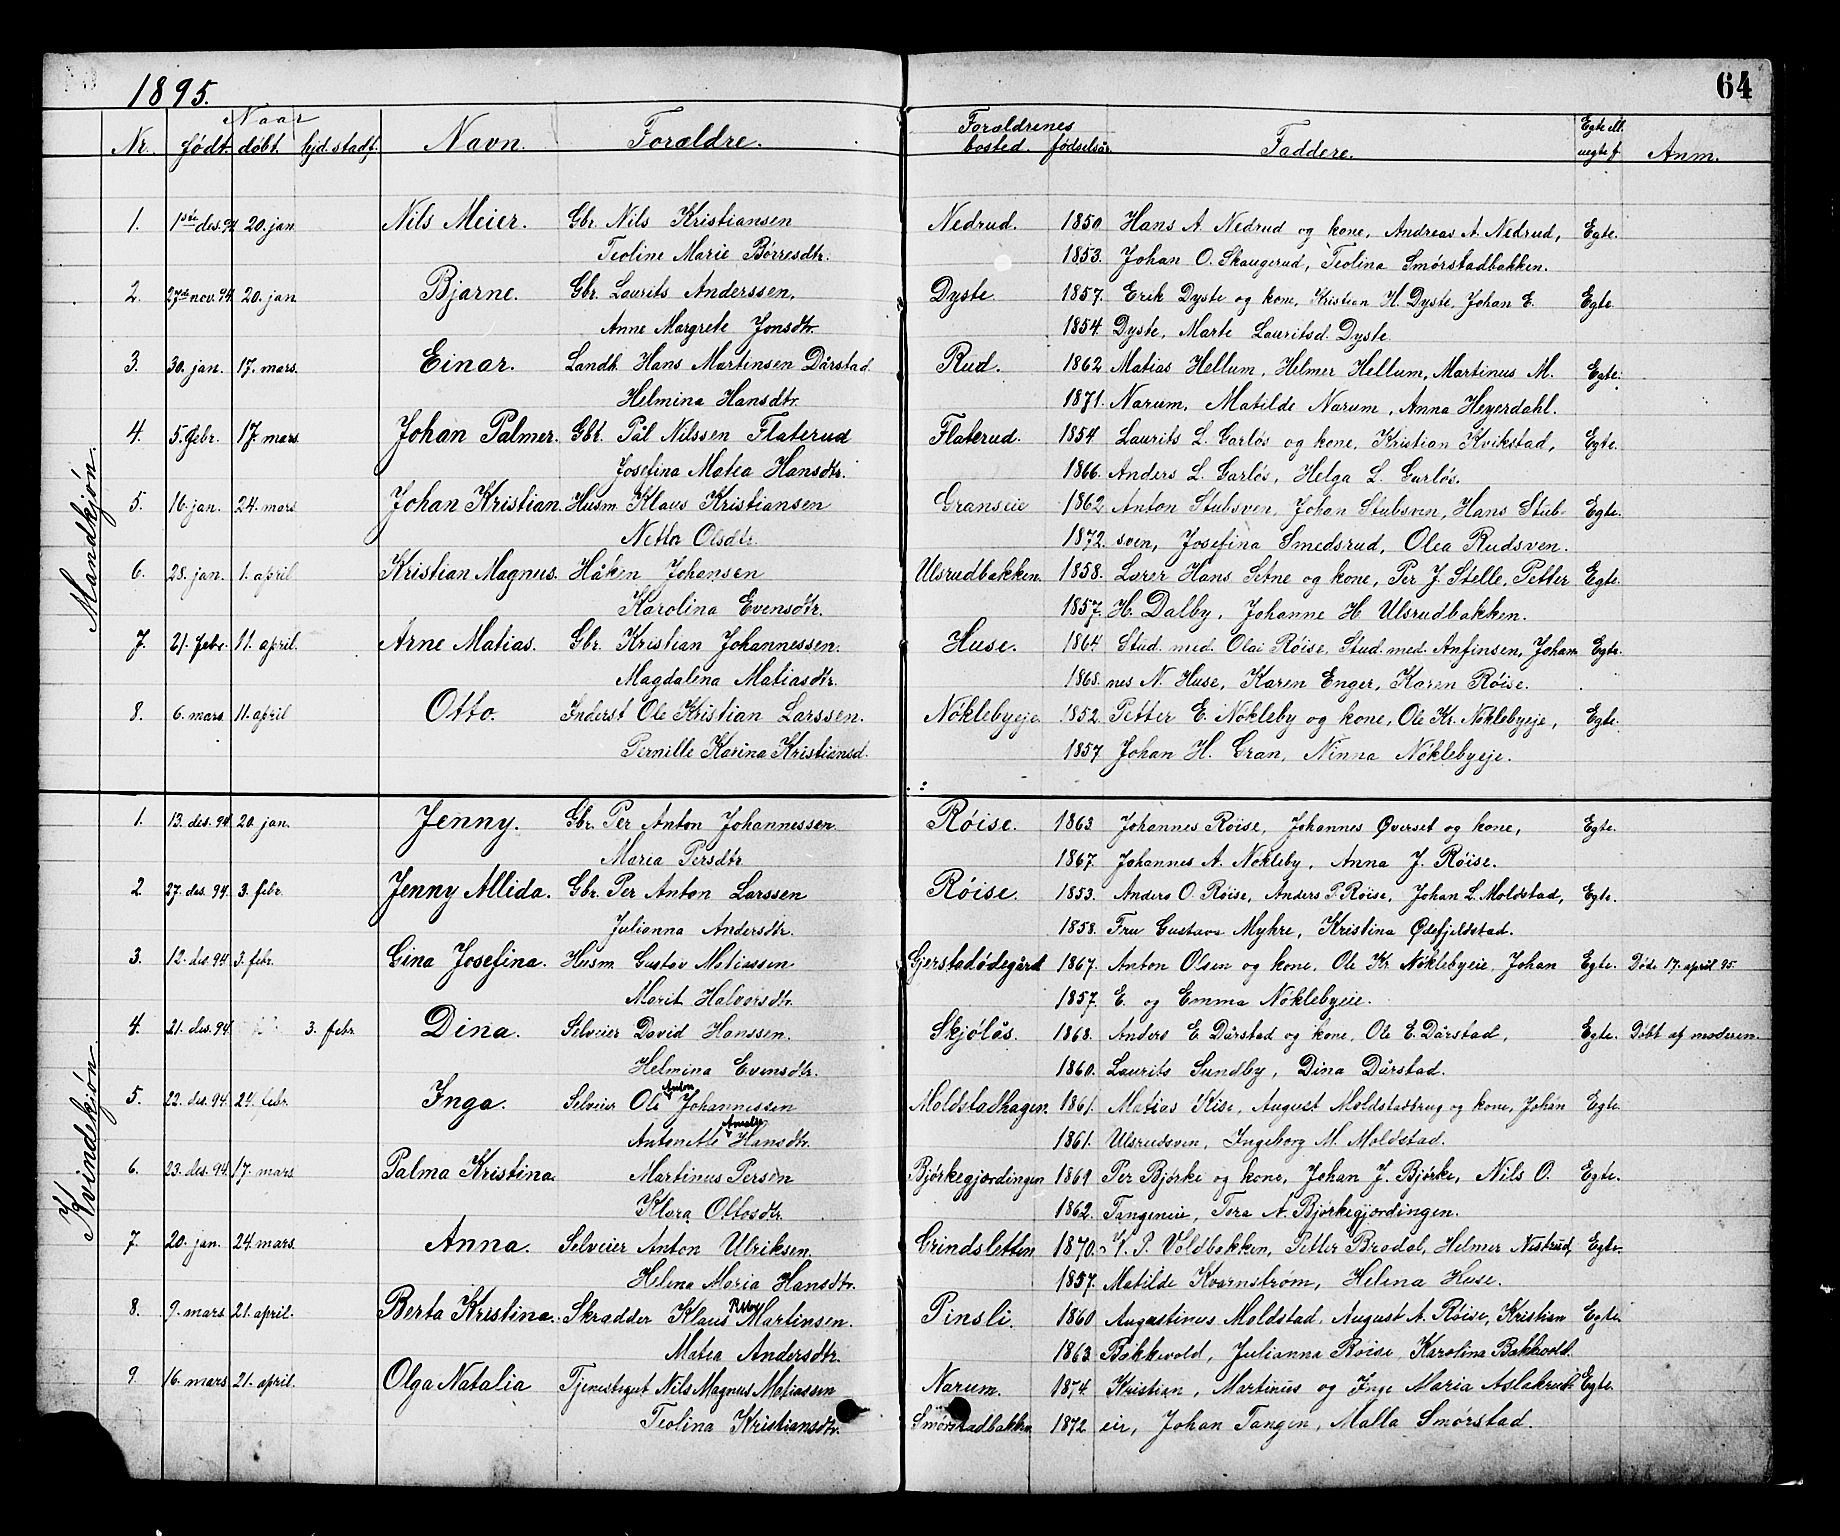 1895.
64
Naar
Nr. født. døbt. hjd. stadf. Navn. Forældre. Forældrenes bosted. fødselsår. Faddere. Egte ell. uegte f. Anm.
Mandkjøn.
1. 1ste des. 94 20. jan Nils Meier. Gbr. Nils Kristiansen Nedrud. 1850. Hans A. Nedrud og kone, Andreas A. Nedrud, Egte.
Teoline Marie Børresdtr. 1853. Johan O. Skaugerud, Teolina Smørstadbakken.
2. 27de nov. 94. 20. jan Bjarne. Gbr. Laurits Anderssen. Dyste. 1857. Erik Dyste og kone, Kristian H. Dyste, Johan E. Egte.
Anne Margrete Jonsdtr. 1854. Dyste, Marte Lauritsd. Dyste.
3. 30. jan. 17. mars. Einar. Landh. Hans Martinsen Dårstad Rud. 1862 Matias Hellum, Helmer Hellum, Martinus M. Egte.
Helmina Hansdtr. 1871. Narum, Matilde Narum, Anna Heyerdahl.
4. 5. febr. 17. mars Johan Palmer. Gbr. Pål Nilssen Flaterud Flaterud. 1854. Laurits L. Garløs og kone, Kristian Kvikstad, Egte.
Josefina Matea Hansdtr. 1866. Anders L. Garløs, Helga L. Garløs.
5. 16. jan. 24. mars Johan Kristian. Husm. Klaus Kristiansen Granseie 1862 Anton Stubsven, Johan Stubsven, Hans Stub- Egte.
Netta Olsdtr. 1872. sven, Josefina Smedsrud, Olea Rudsven.
6. 28. jan. 1. april Kristian Magnus. Håken Johansen Ulsrudbakken. 1858. Lærer Hans Setne og kone, Per J. Stelle, Petter Egte.
Karolina Evensdtr. 1857. H. Dalby, Johanne H. Ulsrudbakken.
7. 21. febr. 11. april. Arne Matias. Gbr. Kristian Johannessen. Huse. 1864 Stud. med. Olai Røise, Stud. med. Anfinsen, Johan- Egte.
Magdalena Matiasdtr. 1868. nes N. Huse, Karen Enger, Karen Røise.
8. 6. mars. 11. april Otto. Inderst Ole Kristian Larssen. Nøklebyeje. 1852. Petter E. Nøkleby og kone, Ole Kr. Nøklebyeje, Egte.
Pernille Karina Kristiansd. 1857. Johan H. Gran, Ninna Nøklebyeje.
Kvindekjøn.
1. 13. des. 94 20. jan. Jenny. Gbr. Per Anton Johannessen Røise. 1863. Johannes Røise, Johannes Øverset og kone, Egte.
Maria Persdtr 1867. Johannes A. Nøkleby, Anna J. Røise.
2 27. des. 94. 3. febr. Jenny Allida. Gbr. Per Anton Larssen Røise. 1853. Anders O. Røise, Anders P. Røise, Johan L. Moldstad, Egte.
Julianna Andersdtr. 1858. Fru Gustava Myhre, Kristina Ødefjeldstad.
3. 12. des. 94 3. febr. Gina Josefina. Husm. Gustav Matiassen Gjerstadødegård 1867. Anton Olsen og kone, Ole Kr. Nøklebyeie, Johan Egte. Døde 17. april 95.
Marit Halvorsdtr. 1857. E. og Emma Nøklebyeie.
4. 21. des. 94. 3. febr. Dina. Selveier David Hanssen. Skjølås. 1868. Anders E. Dårstad og kone, Ole E. Dårstad, Egte. Døbt af moderen.
Helmina Evensdtr. 1860. Laurits Sundby, Dina Dårstad.
5. 22. des. 94. 24. febr. Inga. Selveier Ole Anton Johannessen Moldstadhagen. 1861. Matias Kise, August Moldstadbrug og kone, Johan Egte.
Antonette Amalie Hansdtr. 1861. Ulsrudsven, Ingeborg M. Moldstad.
6. 23. des. 94. 17. mars Palma Kristina. Martinus Persen Bjørkegjordingen 1869 Per Bjørke og kone, Johan J. Bjørke, Nils O. Egte.
Klara Ottosdtr. 1862. Tangeneie, Tora A. Bjørkegjordingen.
7. 20. jan. 24. mars. Anna. Selveier Anton Ulriksen. Grindsletten. 1870. K. P. Voldbakken, Petter Bradal, Helmer Nestrud, Egte.
Helena Maria Hansdtr. 1857. Matilde Kvarnstrøm, Helena Huse.
8. 9. mars 21. april. Berta Kristina. Skrædder Klaus Martinsen. Pinsli. 1860 Augustinus Moldstad, August A. Røise, Kristian Egte.
Matea Andersdtr. 1863. Bakkevold, Julianna Røise, Karolina Bakkvold.
9 16. mars 21. april. Olga Natalia Tjenestegut Nils Magnus Matiassen Narum. 1874. Kristian, Martinus og Inge Maria Aslakrud- Egte.
Teolina Kristiansdtr. Smørstadbakken. 1872 eie, Johan Tangen, Malla Smørstad.